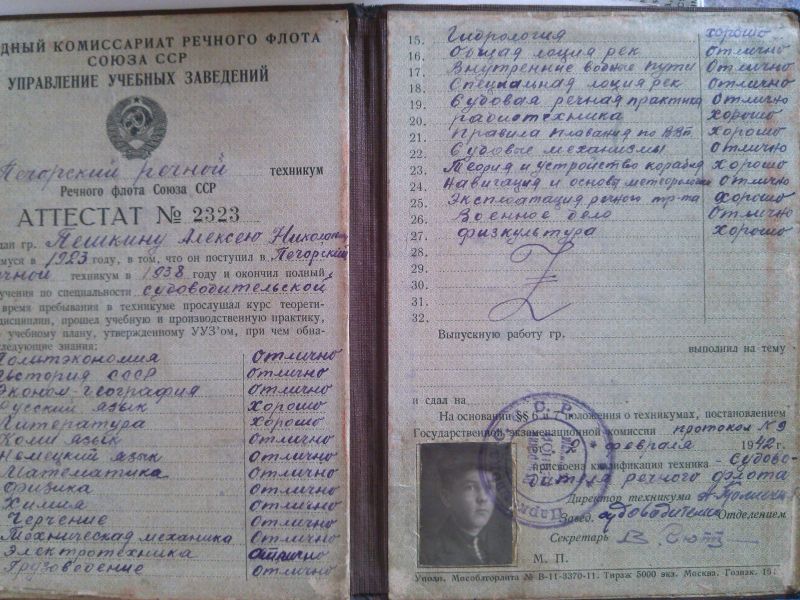 ДНЫЙ КОМИССАРИАТ РЕЧНОГО ФЛОТА
СОЮЗА ССР
УПРАВЛЕНИЕ УЧЕБНЫХ ЗАВЕДЕНИЙ
Печорский речной техникум
Речного флота Союза ССР
АТТЕСТАТ № 2323
гр. Пешкину Алексею
в 1923 году, в том, что он поступил в Печорский
техникум в 1938 году и окончил полный
по специальности судоводительской
время пребывания в техникуме прослушал курс теорети-
прошел учебную и производственную практику,
учебному плану, утвержденному УУЗ'ом, при чем обна-
знания:
Политэкономия отлично
История СССР отлично
Эконом-география отлично
Русский язык хорошо
Литература хорошо
Коми язык отлично
Немецкий язык отлично
Математика отлично
Физика отлично
Химия отлично
Черчение отлично
Техническая механика отлично
Электротехника отлично
Грузоведение отлично
15. Гидрология хорошо
16. Общая лоция рек отлично
17. Внутренние водные пути отлично
18. Специальная лоция рек отлично
19. Судовая речная практика отлично
20. радиотехника хорошо
21. Правила плавания по ВВП хорошо
22. Судовые механизмы отлично
23. Теория и устройство корабля хорошо
24. Навигация и основы метеорологии отлично
25. Эксплоатация речного тр-та хорошо
26. Военное дело отлично
27. физкультура хорошо
28.
29.
30.
31.
32.
Выпускную работу гр.
выполнил на тему
и сдал на
На основании §§ 6 и 7 положения о техникумах, постановлением
Государственной экзаменационной комиссии протокол №9
от февраля 1942 г.
присвоена квалификация техника - судово-
дителя речного флота
Директор техникума
Завед. судоводительским Отделением
Секретарь
М. П.
Уполн. Мособлгорлита № В-11-3370-11. Тираж 5000 экз. Москва. Гознак. 19